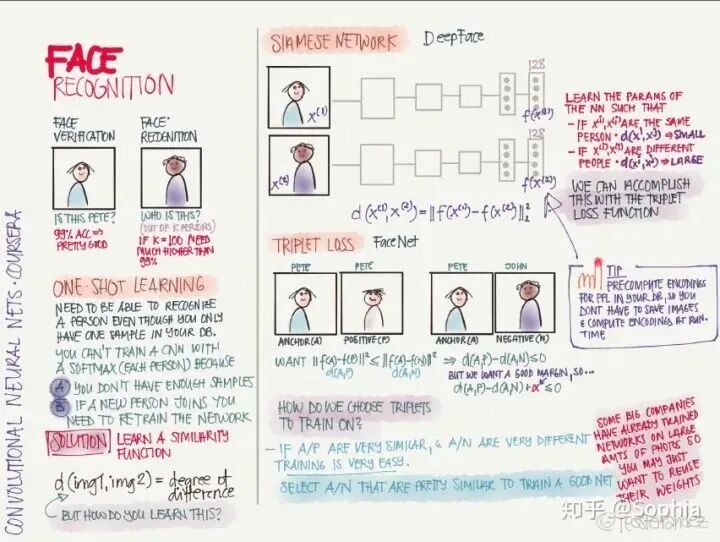 CONVOLUTIONAL NEURAL NETS · COURSERA
FACE
RECOGNITION
FACE
VERIFICATION
IS THIS PETE?
99% ACC ⇒
PRETTY GOOD
FACE
RECOGNITION
WHO IS THIS?
(OUT OF K PERSONS)
IF K=100 NEED
MUCH HIGHER THAN
99%
ONE-SHOT LEARNING
NEED TO BE ABLE TO RECOGNIZE
A PERSON EVEN THOUGH YOU ONLY
HAVE ONE SAMPLE IN YOUR DB.
YOU CAN'T TRAIN A CNN WITH
A SOFTMAX (EACH PERSON) BECAUSE
A YOU DON'T HAVE ENOUGH SAMPLES
B IF A NEW PERSON JOINS YOU
NEED TO RETRAIN THE NETWORK
SOLUTION LEARN A SIMILARITY
FUNCTION
d(img1, img2) = degree of
difference
BUT HOW DO YOU LEARN THIS?
SIAMESE NETWORK DeepFace
x⁽¹⁾
128
f(x⁽¹⁾)
x⁽²⁾
128
f(x⁽²⁾)
d(x⁽¹⁾, x⁽²⁾) = ||f(x⁽¹⁾) - f(x⁽²⁾)||²₂
LEARN THE PARAMS OF
THE NN SUCH THAT
- IF x⁽ⁱ⁾, x⁽ʲ⁾ ARE THE SAME
PERSON · d(xⁱ, xʲ) ⇒ SMALL
- IF x⁽ⁱ⁾, x⁽ʲ⁾ ARE DIFFERENT
PEOPLE · d(xⁱ, xʲ) ⇒ LARGE
WE CAN ACCOMPLISH
THIS WITH THE TRIPLET
LOSS FUNCTION
TIP
PRECOMPUTE ENCODINGS
FOR PPL IN YOUR DB, SO YOU
DONT HAVE TO SAVE IMAGES
& COMPUTE ENCODINGS AT RUN-
TIME
TRIPLET LOSS FaceNet
PETE PETE PETE JOHN
ANCHOR (A) POSITIVE (P) ANCHOR (A) NEGATIVE (N)
WANT ||f(A)-f(P)||² ≤ ||f(A)-f(N)||² ⇒ d(A,P)-d(A,N) ≤ 0
d(A,P) d(A,N) BUT WE WANT A GOOD MARGIN, SO...
d(A,P)-d(A,N)+α ≤ 0
HOW DO WE CHOOSE TRIPLETS
TO TRAIN ON?
- IF A/P ARE VERY SIMILAR, & A/N ARE VERY DIFFERENT
TRAINING IS VERY EASY.
SELECT A/N THAT ARE PRETTY SIMILAR TO TRAIN A GOOD NET
SOME BIG COMPANIES
HAVE ALREADY TRAINED
NETWORKS ON LARGE
AMTS OF PHOTOS SO
YOU MAY JUST
WANT TO REUSE
THEIR WEIGHTS
知乎 @Sophia